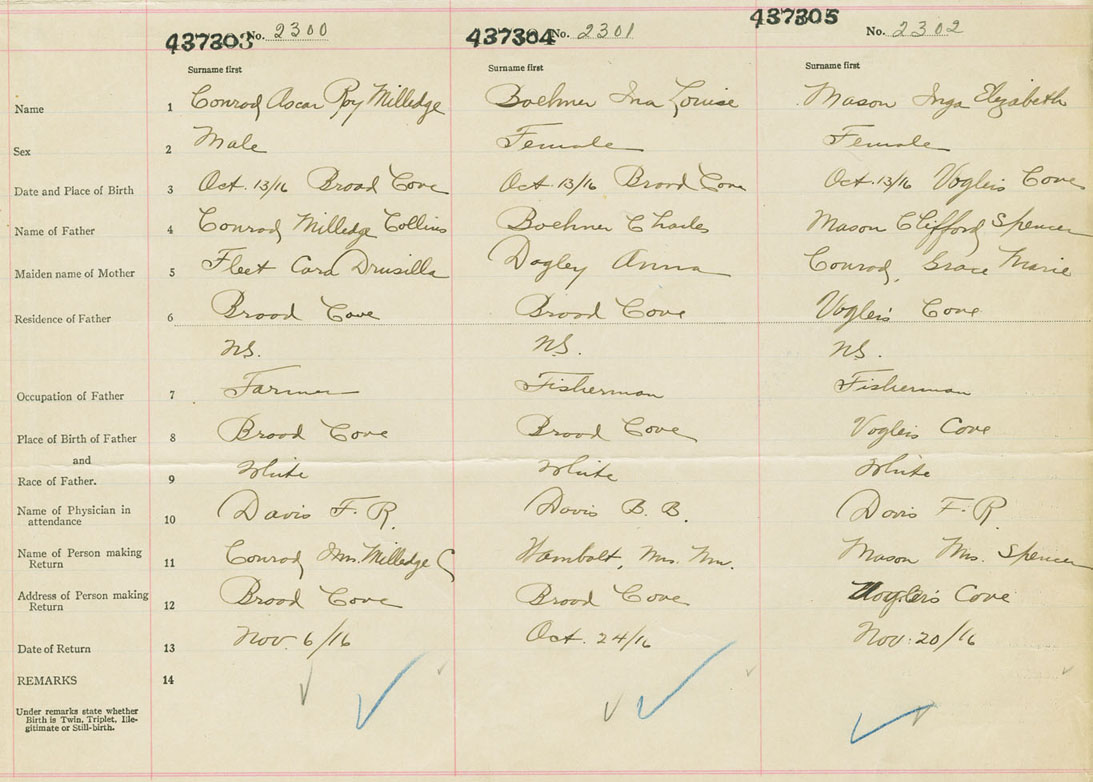 437303 No. 2300 437304 No. 2301 437305 No. 2302
Surname first Surname first Surname first
Name 1 Conrad Oscar Roy Milledge Boehner Ina Louise Mason Inga Elizabeth
Sex 2 Male Female Female
Date and Place of Birth 3 Oct. 13/16 Broad Cove Oct. 13/16 Broad Cove Oct. 13/16 Voglers Cove
Name of Father 4 Conrad Milledge Collins Boehner Charles Mason Clifford Spencer
Maiden name of Mother 5 Fleet Cora Drusilla Dagley Anna Conrad, Grace Marie
Residence of Father 6 Broad Cove Broad Cove Vogler's Cove
N.S. N.S. N.S.
Occupation of Father 7 Farmer Fisherman Fisherman
Place of Birth of Father 8 Broad Cove Broad Cove Voglers Cove
and
Race of Father. 9 White White White
Name of Physician in
attendance 10 Davis F. R. Davis B. B. Davis F. R.
Name of Person making
Return 11 Conrad Mrs. Milledge C Hambolt, Mrs. Wm. Mason Mrs. Spencer
Address of Person making
Return 12 Broad Cove Broad Cove Vogler's Cove
Date of Return 13 Nov. 6/16 Oct. 24/16 Nov. 20/16
REMARKS 14
Under remarks state whether
Birth is Twin, Triplet, Ille-
gitimate or Still-birth.